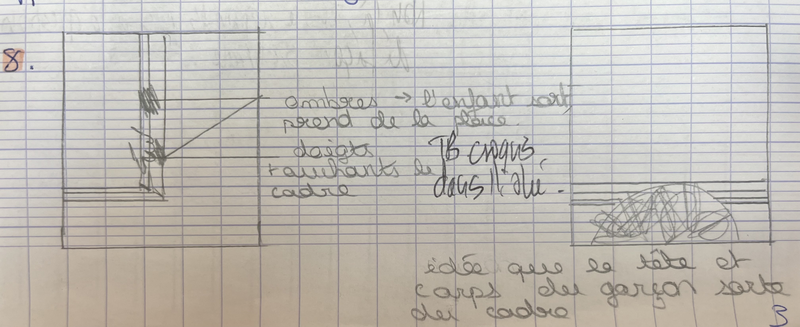 8.
ombres → l'enfant sort,
prend de la place.
doigts
touchants le
cadre
TB croqué
dans l'
idée que la tête et
corps du garçon sorte
du cadre
3